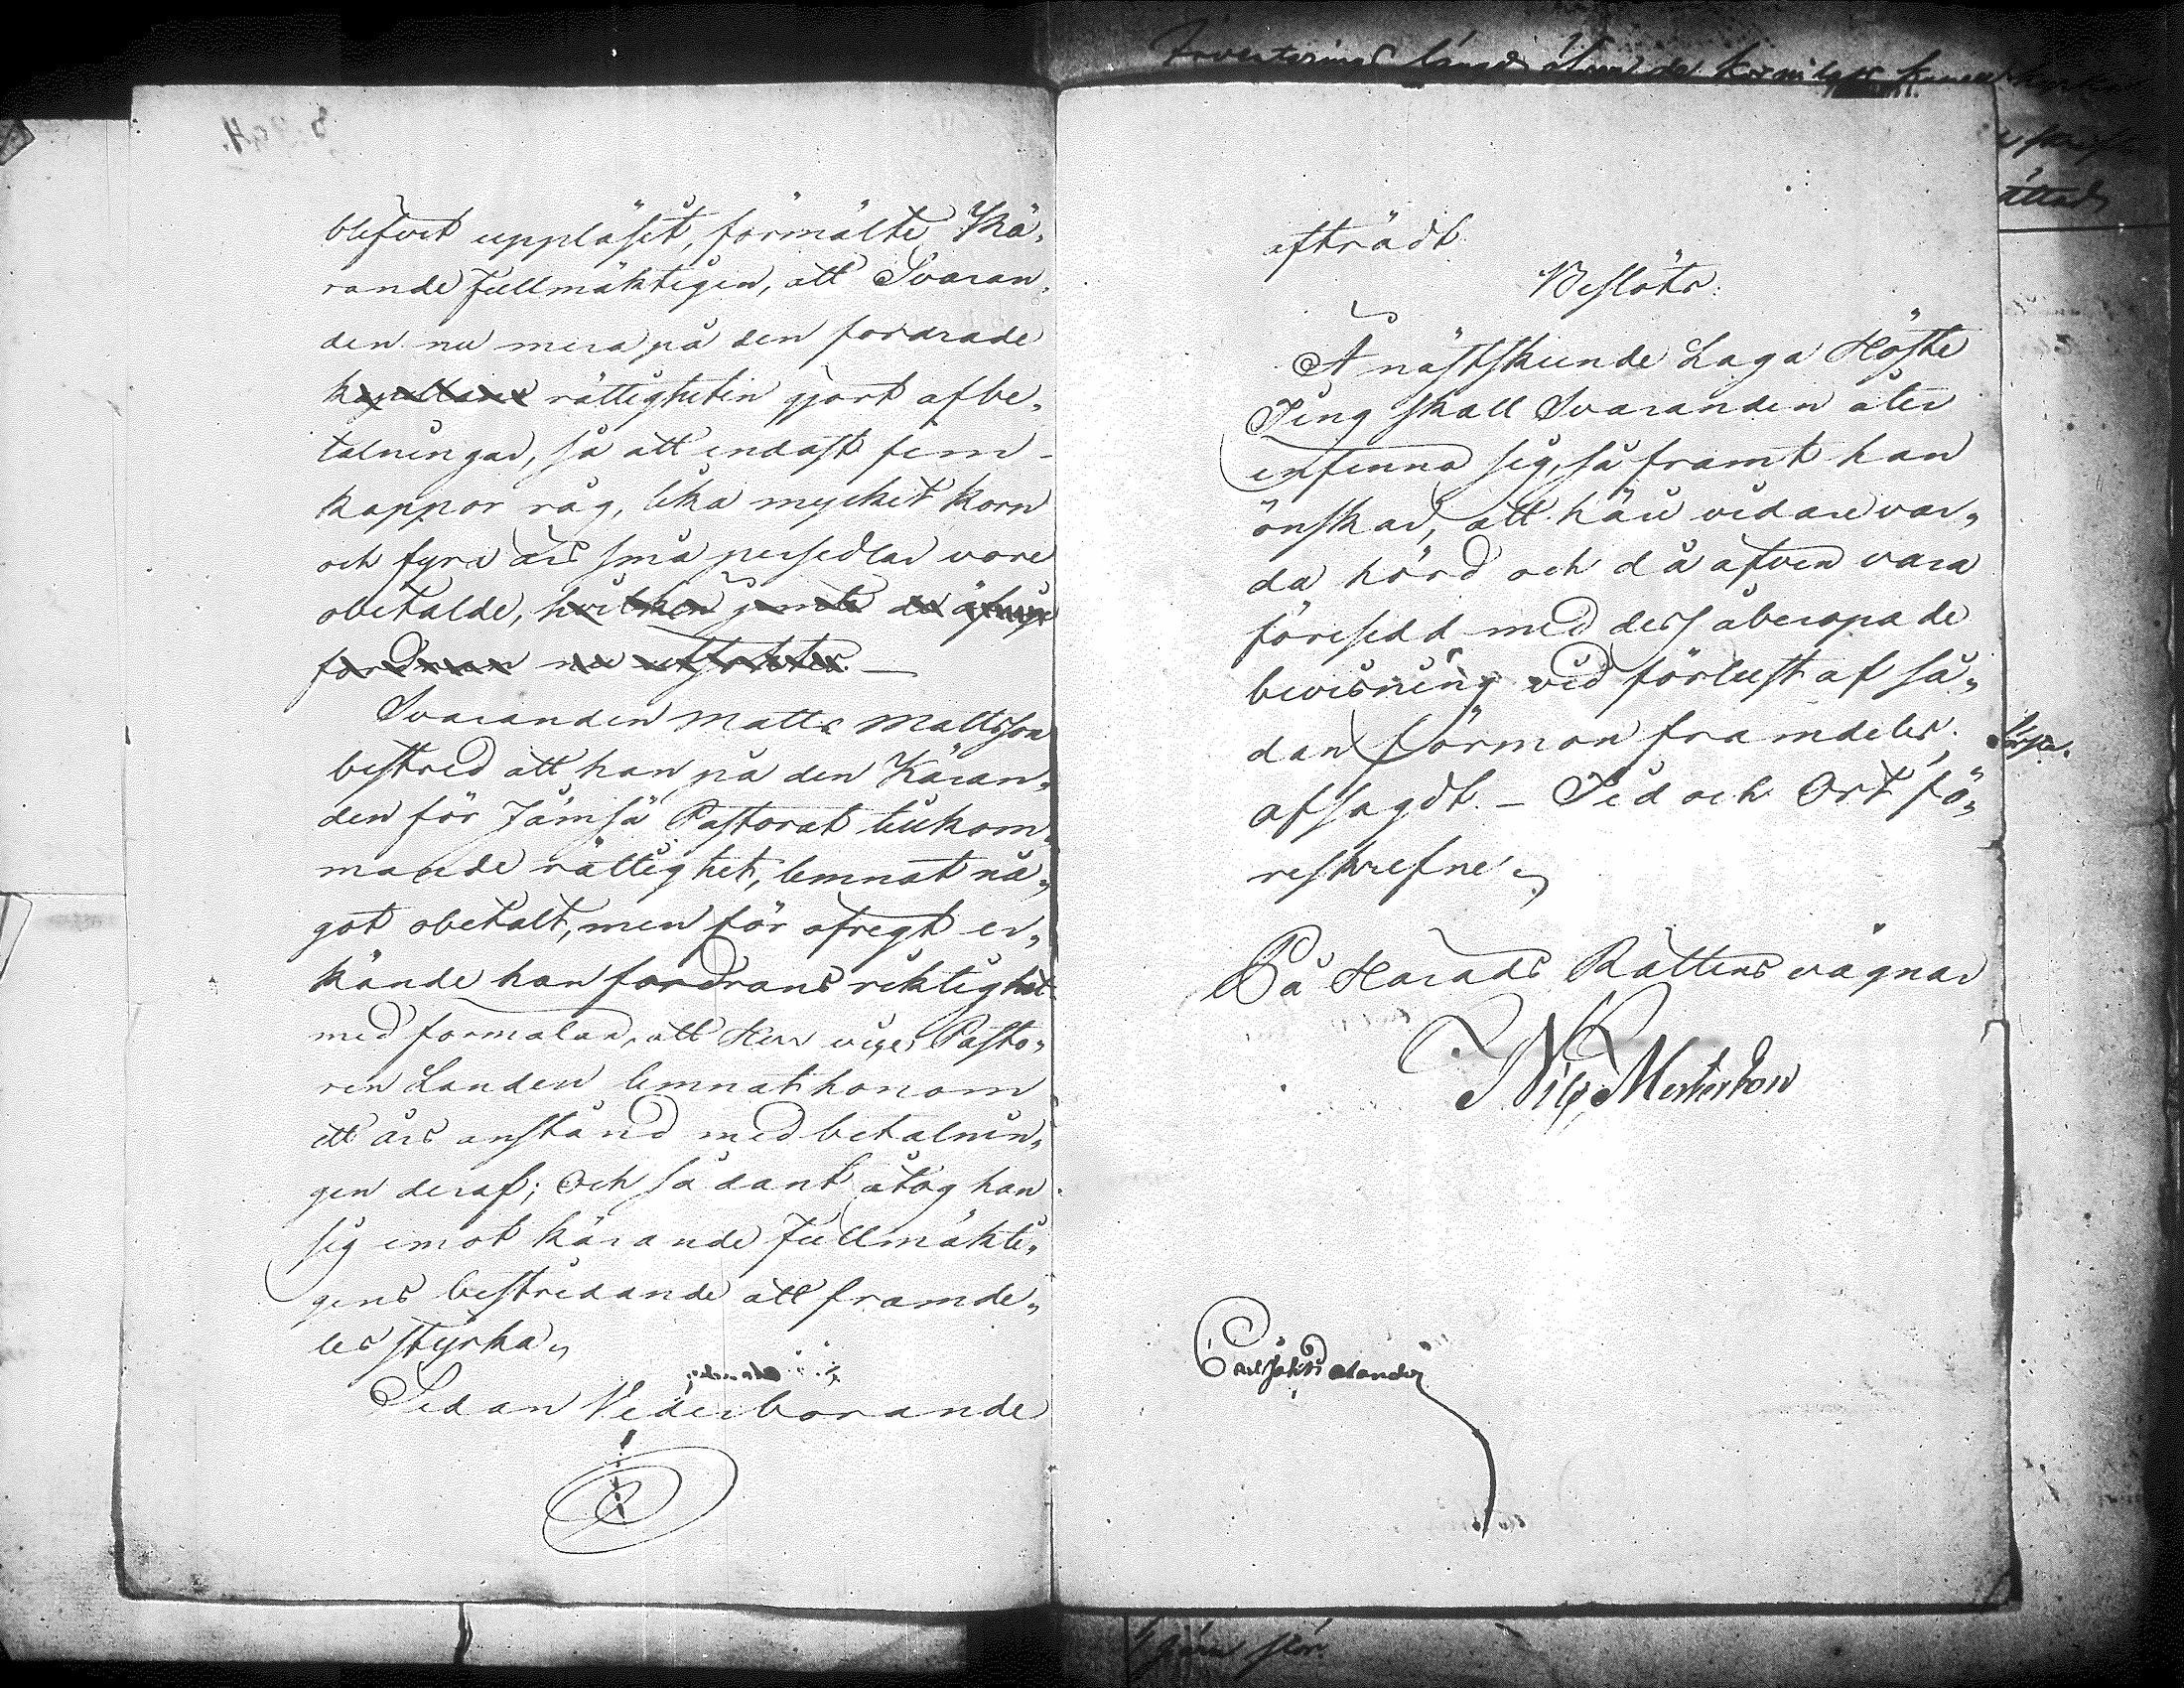 blifvit uppläsit, förmälte Kä,
rande Fullmäktigen, att Svaran,
den nu mera på den fordrade
rättigheten gjort afbe,
talningar, så att endast fem
kappor råg, lika mycket korn
och fyra års små persedlar vore
obetalde, hvilken jemte
fordran nu
Svaranden Matts Mattsson
bestred att han på den Käran,
den för Jämsä Pastorat tillkom,
mande rättighet, lemnat nå,
got obetalt, men för öfregt er,
kände han fordrans riktighet
med förmälan, att Herr vice Pasto,
ren Landen lemnat honom
ett års anstånd med betalnin,
gen deraf; och sådant åtog han
sig emot kärande Fullmäkti,
gens bestridande att framde,
les styrka,
Sedan Vederbörande
afträdt
Beslöts:
Å nästskunde Laga Höste
Ting skall Svaranden åter
infinna sig, så framt han
önskar, att häri vidare var,
da hörd och då äfven vara
försedd med dess åberopade
bevisning vid förlust af så,
dan förmon framdeles;
afsagdt. – Tid och Ort fö,
reskrefne,
På Härads Rättens vägnar
Nils
Inventerings längd öfver